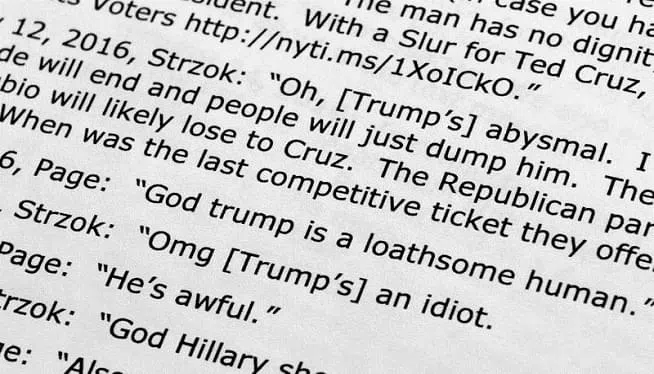 ident. The man has no dignit
ts Voters http://nyti.ms/1XoICkO.” With a Slur for Ted Cruz,
12, 2016, Strzok: “Oh, [Trump’s] abysmal. I
de will end and people will just dump him. The
bio will likely lose to Cruz. The Republican par
When was the last competitive ticket they offe
6, Page: “God trump is a loathsome human.”
Strzok: “Omg [Trump’s] an idiot.
Page: “He’s awful.”
trzok: “God Hillary sho
ge: “Also